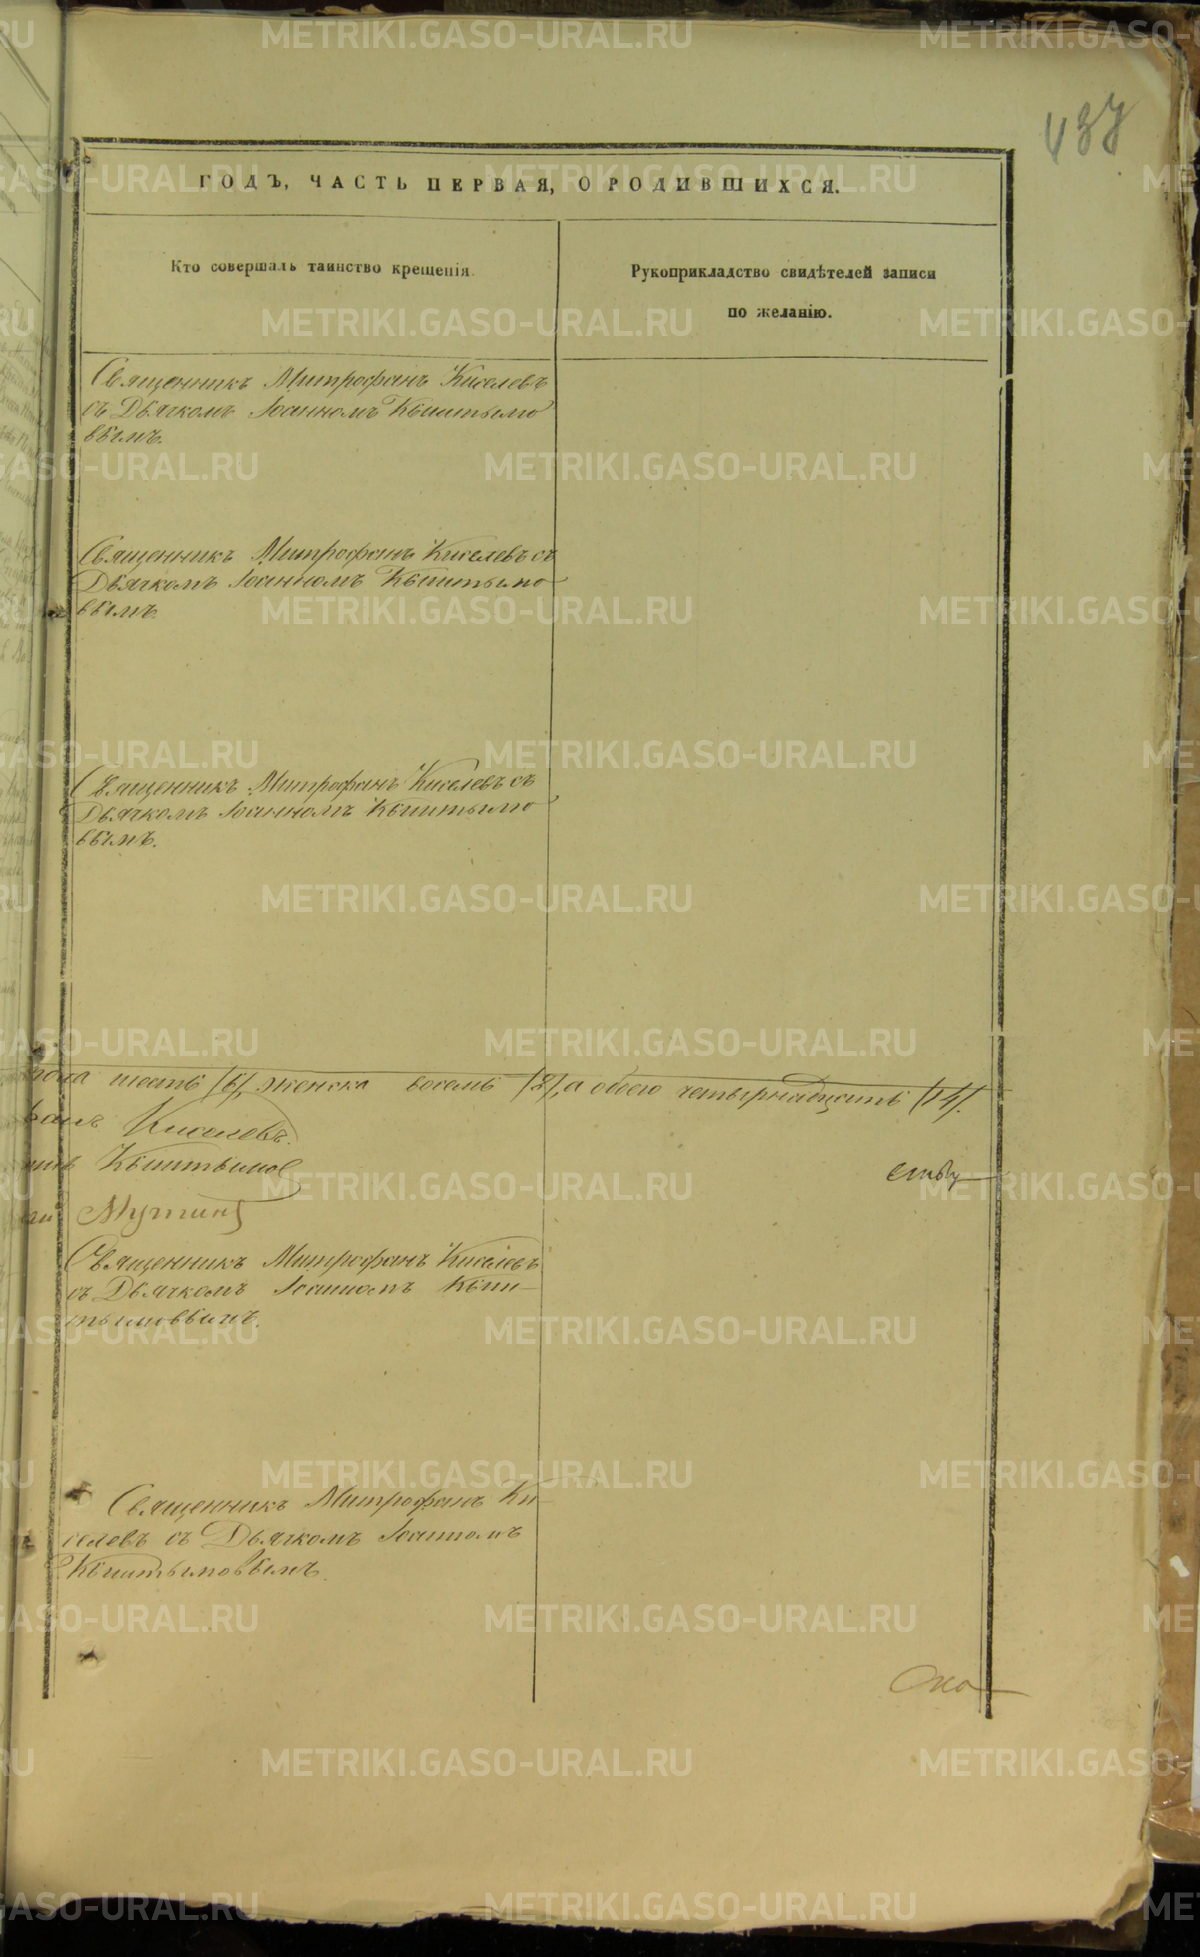 437
ГОДЪ, ЧАСТЬ ПЕРВАЯ, О РОДИВШИХСЯ.
Кто совершалъ таинство крещенія.
Рукоприкладство свидѣтелей записи
по желанію.
Священникъ Митрофанъ Киселевъ
съ Дьячкомъ Іоанномъ Кыштымо
вымъ.
Священникъ Митрофанъ Киселевъ съ
Дьячкомъ Іоанномъ Кыштымо
вымъ.
Священникъ Митрофанъ Киселевъ съ
Дьячкомъ Іоанномъ Кыштымо
вымъ.
пола шесть /6/, женска восемь /8/, а обоего четырнадцать /14/.
Киселевъ.
Кыштымов
Мутинъ
Священникъ Митрофанъ Киселевъ
съ Дьячкомъ Іоанномъ Кыш-
тымовымъ.
Священникъ Митрофанъ Ки-
селевъ съ Дьячкомъ Іоанномъ
Кыштымовымъ.
METRIKI.GASO-URAL.RU